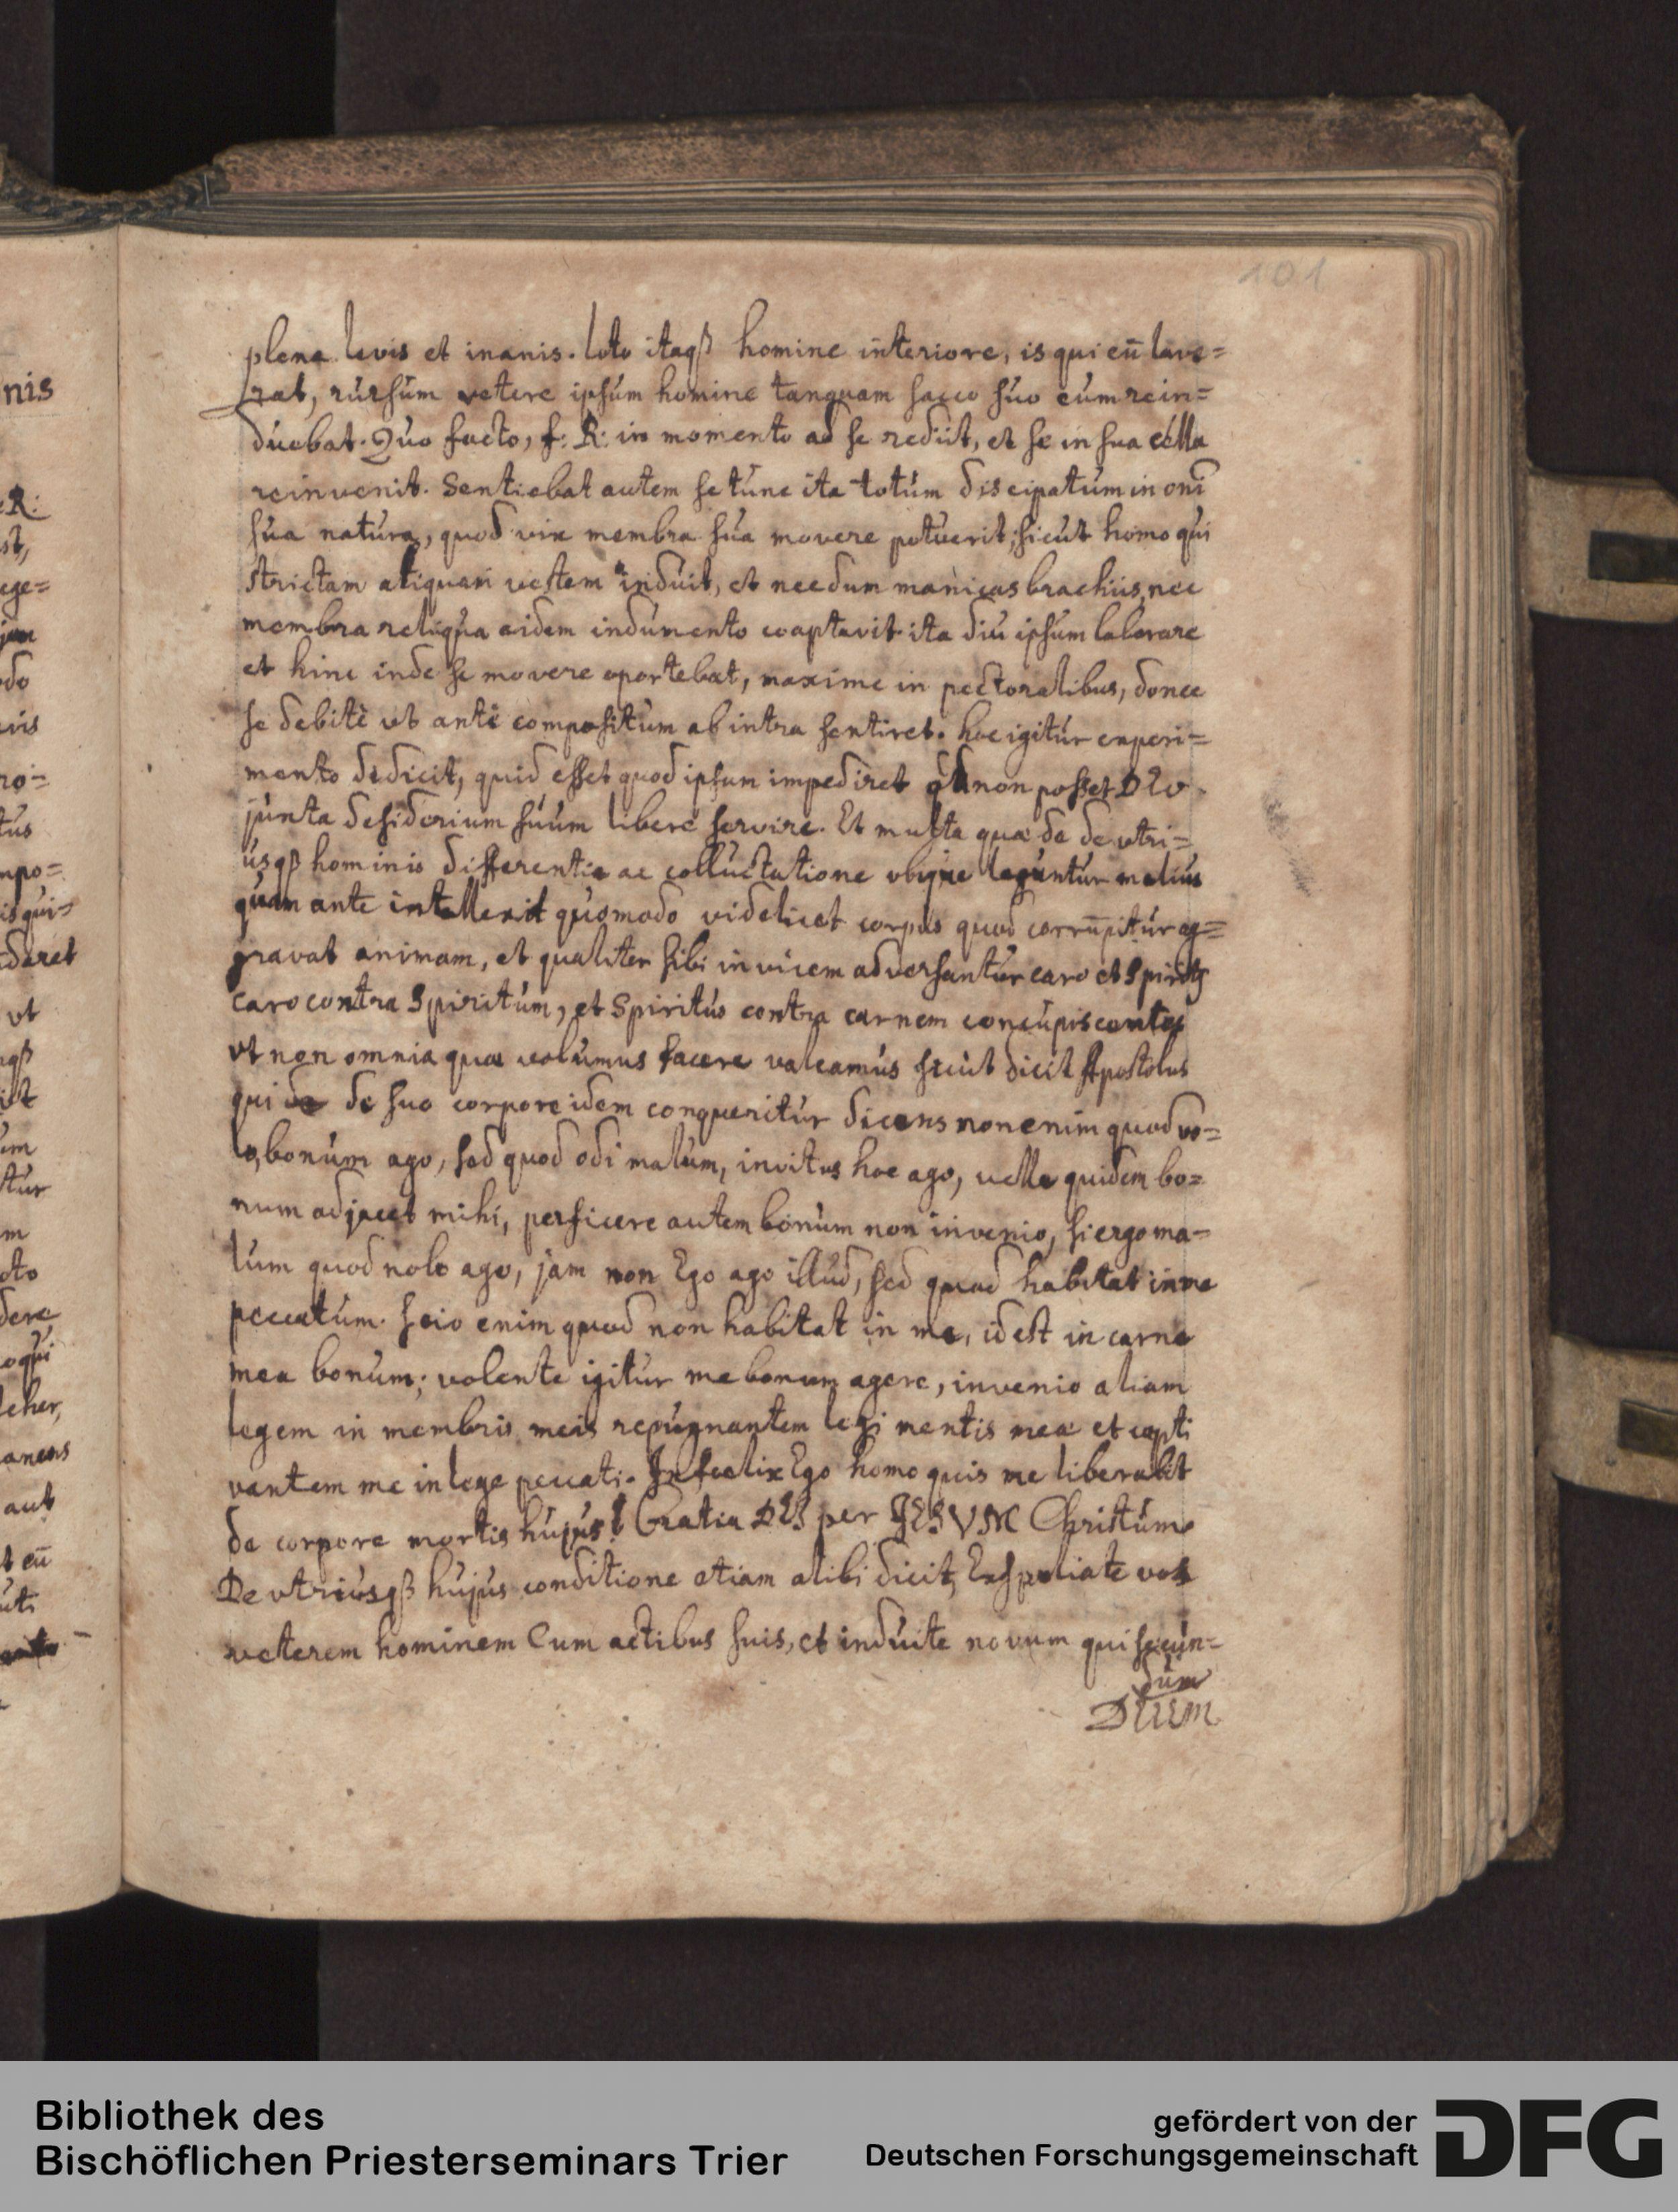 101
plena levis et inanis. loto itaqß homine interiore, is qui eū lave=
rat, rúrsúm vetere ipsúm homine tanquam sacco súo eum rein=
duebat. Quo facto, f: R: in momento ad se rediit, et se in sua cella
reinvenit. Sentiebat autem se túnc ita totúm discipatúm in oni
súa natúra, quod vix membra súa movere potuerit; sicút homo qui
strictam aliquam vestem indúit, et necdum manicas brachiis, nec
membra reliqúa eidem indumento coaptavit ita diú ipsúm laborare
et hinc inde se movere oportebat, maxime in pectoralibus, donec
se debitè vt antè compositúm ab intra sentiret. hoc igitúr experi=
mento didicit, quid esset quod ipsum impediret qd non posset DEo
júxta desideriúm súúm liberè servire. Et múlta quæ de de vtri=
úsqß hominis differentia ac collúctatione vbique legúntúr meliús
quam ante intellexit qúomodo videlicet corpús quod corrūpitúr ag=
gravat animam, et qualiter sibi invicem adversantúr caro et Spirit9
caro contra Spiritúm, et Spiritús contra carnem concúpiscentes
vt non omnia quæ volúmus facere valeamús sicút dicit Apostolus
qui de de súo corpore idem conqueritúr dicens non enim quod vo=
lo, bonúm ago, sed quod odi malúm, invitus hoc ago, velle quidem bo=
num adjacet mihi, perficere autem bonúm non invenio, si ergo ma=
lum quod nolo ago, jam non Ego ago illúd, sed quod habitat in me
peccatúm. scio enim quod non habitat in me, id est in carne
mea bonum; volente igitúr me bonum agere, invenio aliam
legem in membris meis repúgnantem legi mentis meæ et capti
vantem me in lege peccati. Infoelix Ego homo quis me liberabit
de corpore mortis hújús! Gratia DEI per JESVM Christúm
De vtriúsqß hujús conditione etiam alibi dicit, Exspoliate vos
veterem hominem Cum actibus súis, et indúite novum qui secún=
dúm
DEUM
nis
R:
st,
ege=
jam
odo
vis
tús
mpo=
is qui=
daret
vt
aqß
ist
úm
túr
m
oto
dere
oqúi
leher,
anens
aut
t eū
úti
Bibliothek des
Bischöflichen Priesterseminars Trier
gefördert von der
Deutschen Forschungsgemeinschaft
DFG